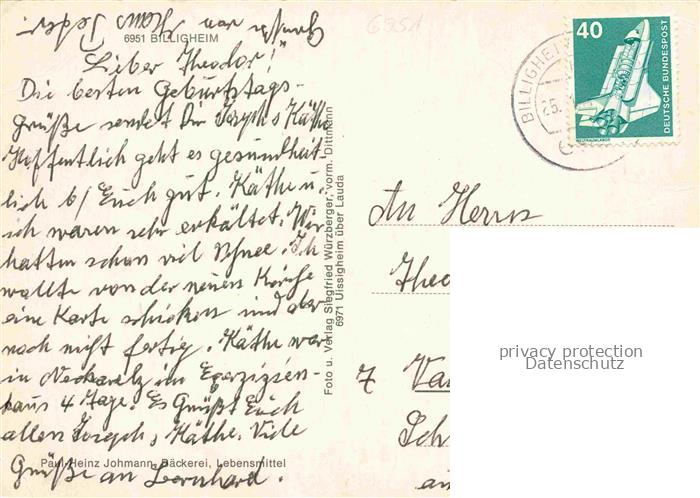 6951 BILLIGHEIM
6951
Lieber Theodor!
Die besten Geburtstags-
grüße sendet Dir Joseph & Käthe
Hoffentlich geht es gesundheit-
lich b/ Euch gut. Käthe u.
ich waren sehr erkältet. Wir
hatten schon viel Schnee. Ich
wollte von der neuen Kirche
eine Karte schicken sind aber
noch nicht fertig. Käthe war
in Neckarelz im Exerzizien-
haus 4 Tage. Es Grüßt Euch
allen Joseph & Käthe. Viele
Paul-Heinz Johmann, Bäckerei, Lebensmittel
Grüße an Bernhard.
Foto u. Verlag Siegfried Würzberger, vorm. Dittmann
6971 Uissigheim über Lauda
BILLIGHEI
25.
40
DEUTSCHE BUNDESPOST
WELTRAUMLABOR
An Herrn
Theo
7 Va
Sch
privacy protection
Datenschutz